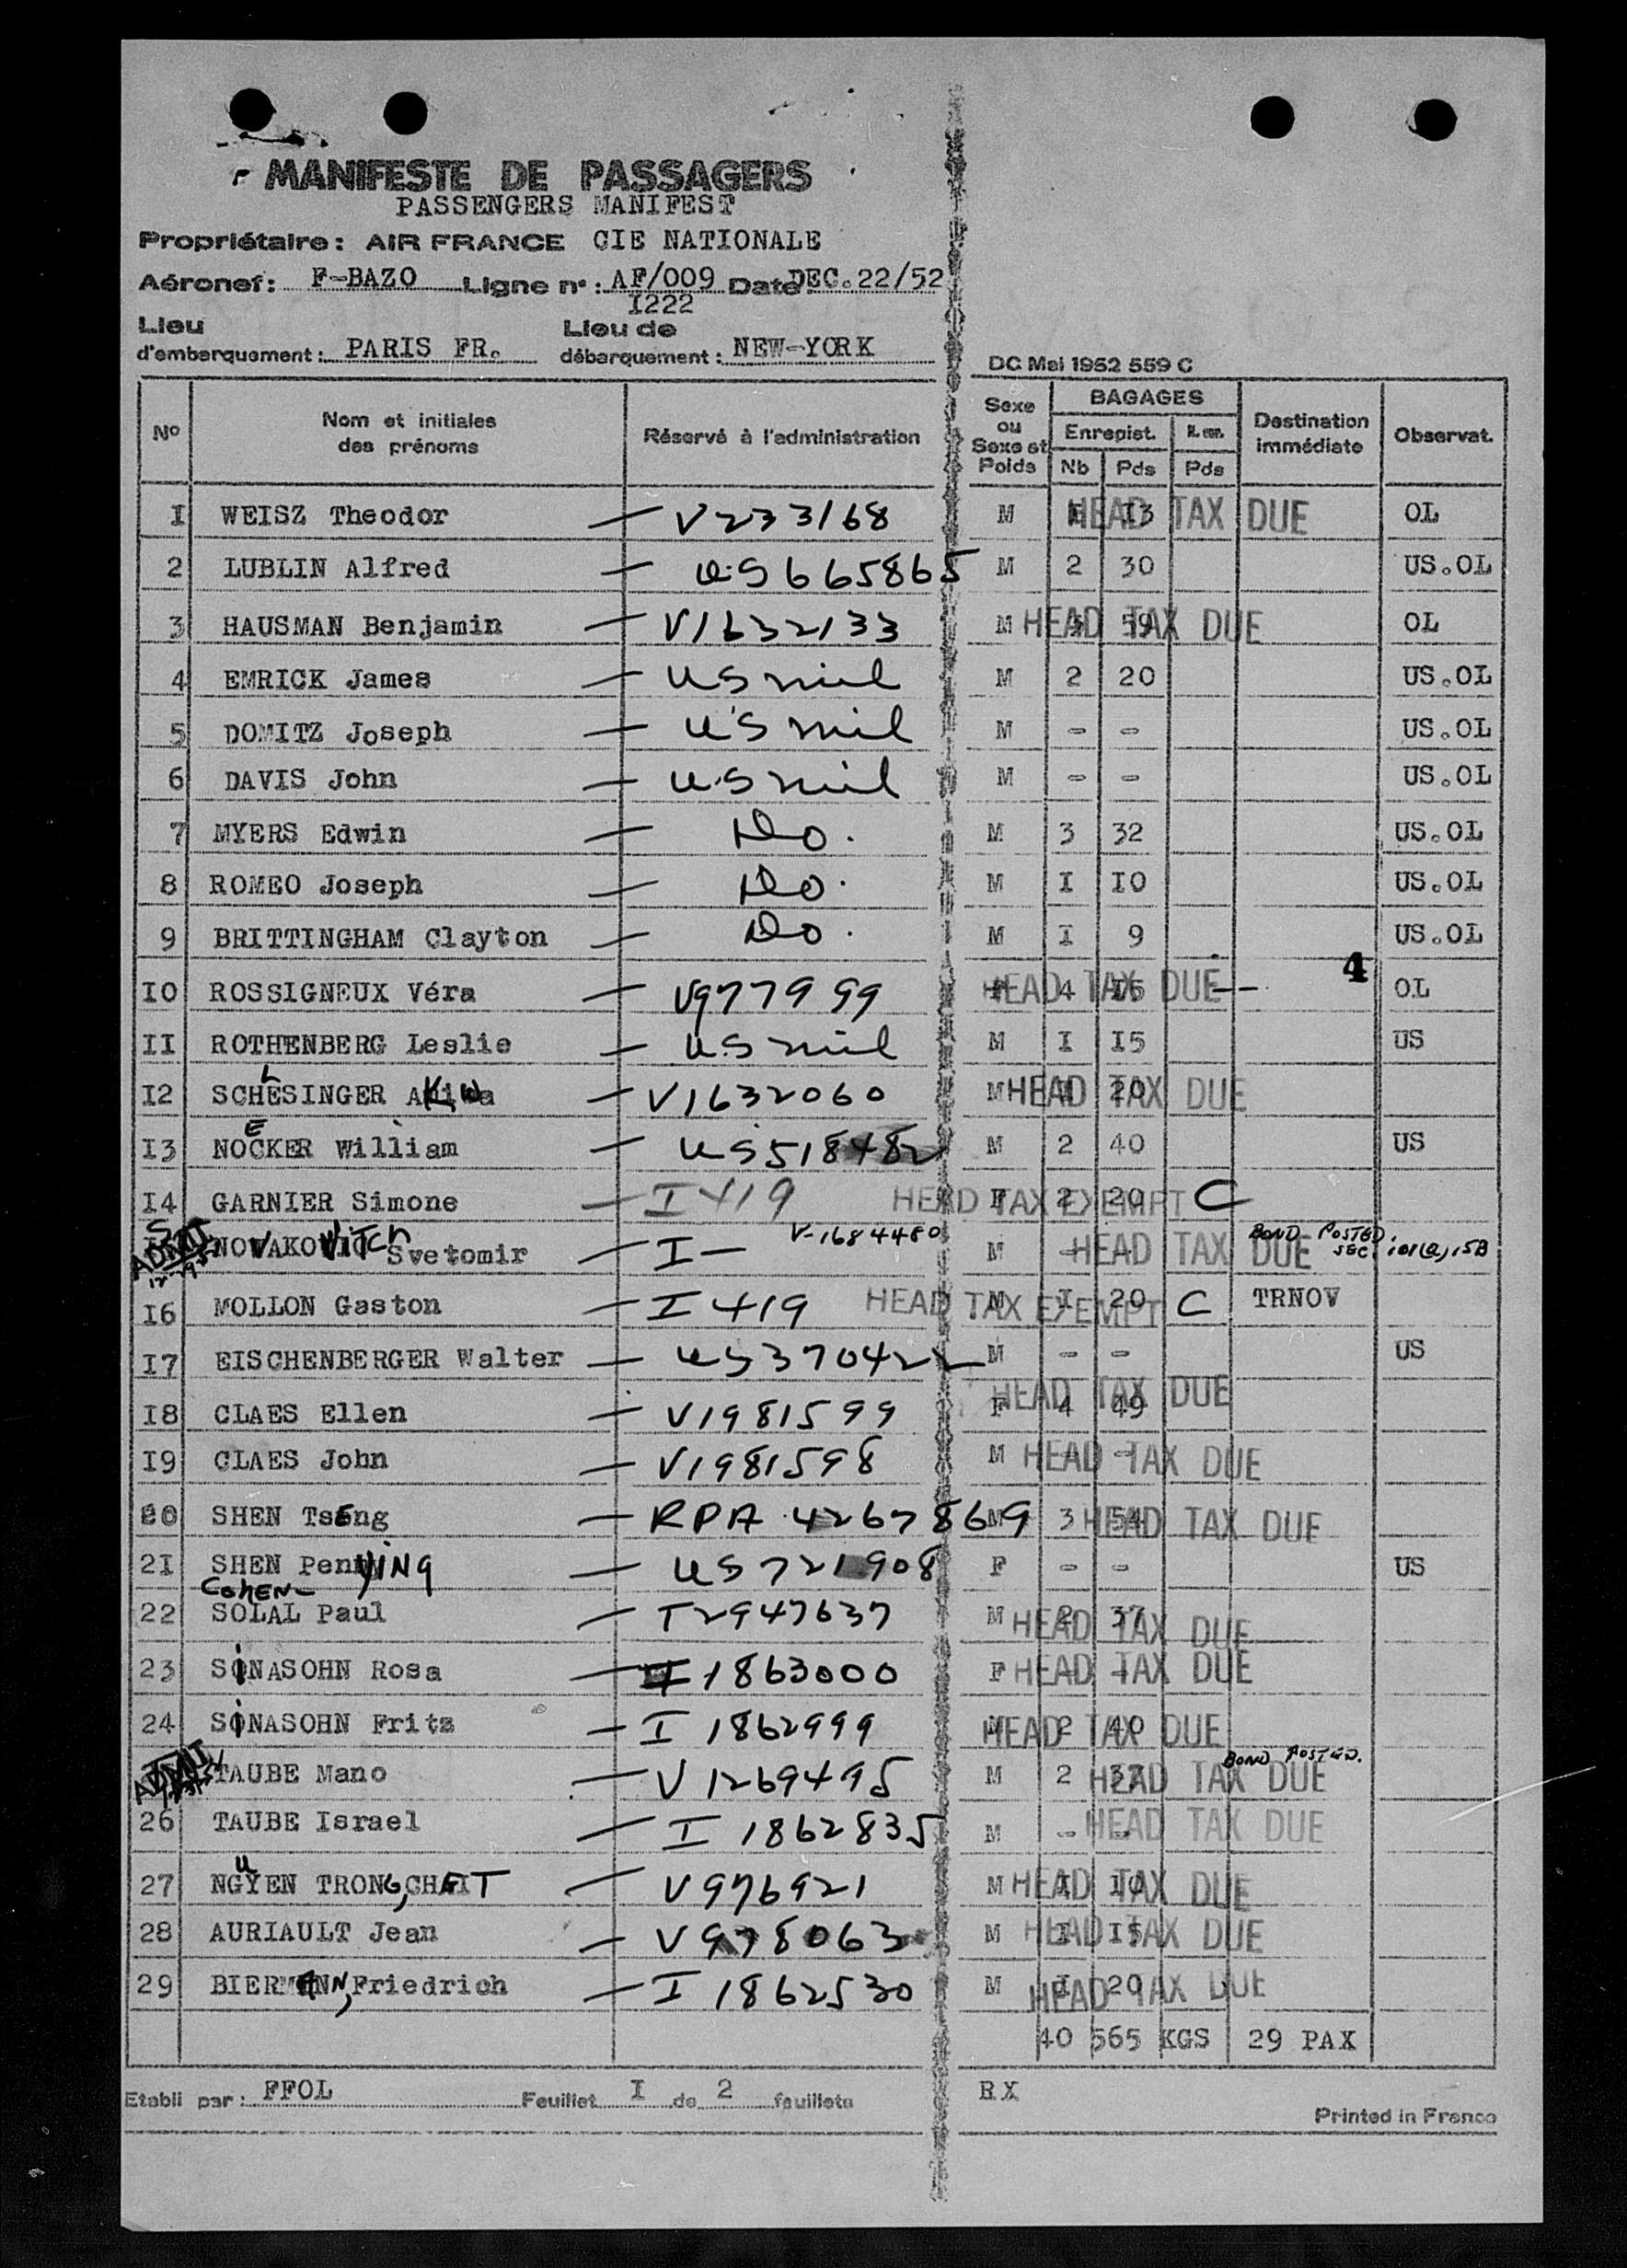 MANIFESTE DE PASSAGERS
PASSENGERS MANIFEST
Propriétaire: AIR FRANCE CIE NATIONALE
Aéronef: F-BAZO Ligne n°: AF/009 Date DEC.22/52
I222
Lieu d'embarquement: PARIS FR. Lieu de débarquement: NEW-YORK
DC Mai 1952 559 C
N° Nom et initiales des prénoms Réservé à l'administration Sexe ou Sexe et Poids BAGAGES Enregist. Nb Pds Pds Destination immédiate Observat.
I WEISZ Theodor — V233168 M I3 HEAD TAX DUE OL
2 LUBLIN Alfred — US665865 M 2 30 US.OL
3 HAUSMAN Benjamin — V1632133 M 59 HEAD TAX DUE OL
4 EMRICK James — US mil M 2 20 US.OL
5 DOMITZ Joseph — US mil M - - US.OL
6 DAVIS John — US mil M - - US.OL
7 MYERS Edwin — Do. M 3 32 US.OL
8 ROMEO Joseph — Do. M I IO US.OL
9 BRITTINGHAM Clayton — Do. M I 9 US.OL
4
IO ROSSIGNEUX Véra — V977999 4 I5 HEAD TAX DUE -- OL
II ROTHENBERG Leslie — US mil M I I5 US
I2 SCHLESINGER Akiwa — V1632060 M 20 HEAD TAX DUE
I3 NOECKER William — US518482 M 2 40 US
I4 GARNIER Simone — I 419 F 2 20 HEAD TAX EXEMPT C
ADMIT NOVAKOVITCH Svetomir — I — V-1684480 M - HEAD TAX DUE BOND POSTED. SEC. 101(a),15B
I6 MOLLON Gaston — I 419 M I 20 HEAD TAX EXEMPT C TRNOV
I7 EISCHENBERGER Walter — US370422 M - - US
I8 CLAES Ellen — V1981599 F 4 49 HEAD TAX DUE
I9 CLAES John — V1981598 M - HEAD TAX DUE
20 SHEN TsEng — RPA 4267869 M 3 54 HEAD TAX DUE
2I SHEN PenYING — US721908 F - - US
COHEN-
22 SOLAL Paul — T2947637 M 2 37 HEAD TAX DUE
23 SiNASOHN Rosa — I 1863000 F - HEAD TAX DUE
24 SiNASOHN Fritz — I 1862999 2 40 HEAD TAX DUE
ADMIT TAUBE Mano — V1269495 M 2 37 HEAD TAX DUE BOND POSTED.
26 TAUBE Israel — I 1862835 M - - HEAD TAX DUE
27 NGUYEN TRONG, CHAIT — V976921 M I IO HEAD TAX DUE
28 AURIAULT Jean — V978063 M I I5 HEAD TAX DUE
29 BIERMANN, Friedrich — I 1862530 M I 20 HEAD TAX DUE
40 565 KGS 29 PAX
Etabli par: FFOL Feuillet I de 2 feuillets RX
Printed in France